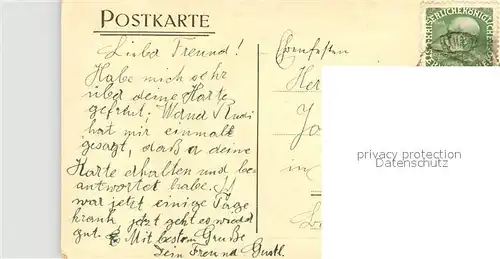 POSTKARTE
Lieber Freund!
Habe mich sehr
über deine Karte
gefreut; Wand Rudi
hat mir einmal
gesagt, daß er deine
Karte erhalten und be-
antwortet habe. Ich
war jetzt einige Tage
krank jetzt geht es wieder
gut. Mit bestem Gruße
Dein Freund Gustl.
Her
Jo
in
KAISERLICHEKÖNIGLICH
privacy protection
Datenschutz